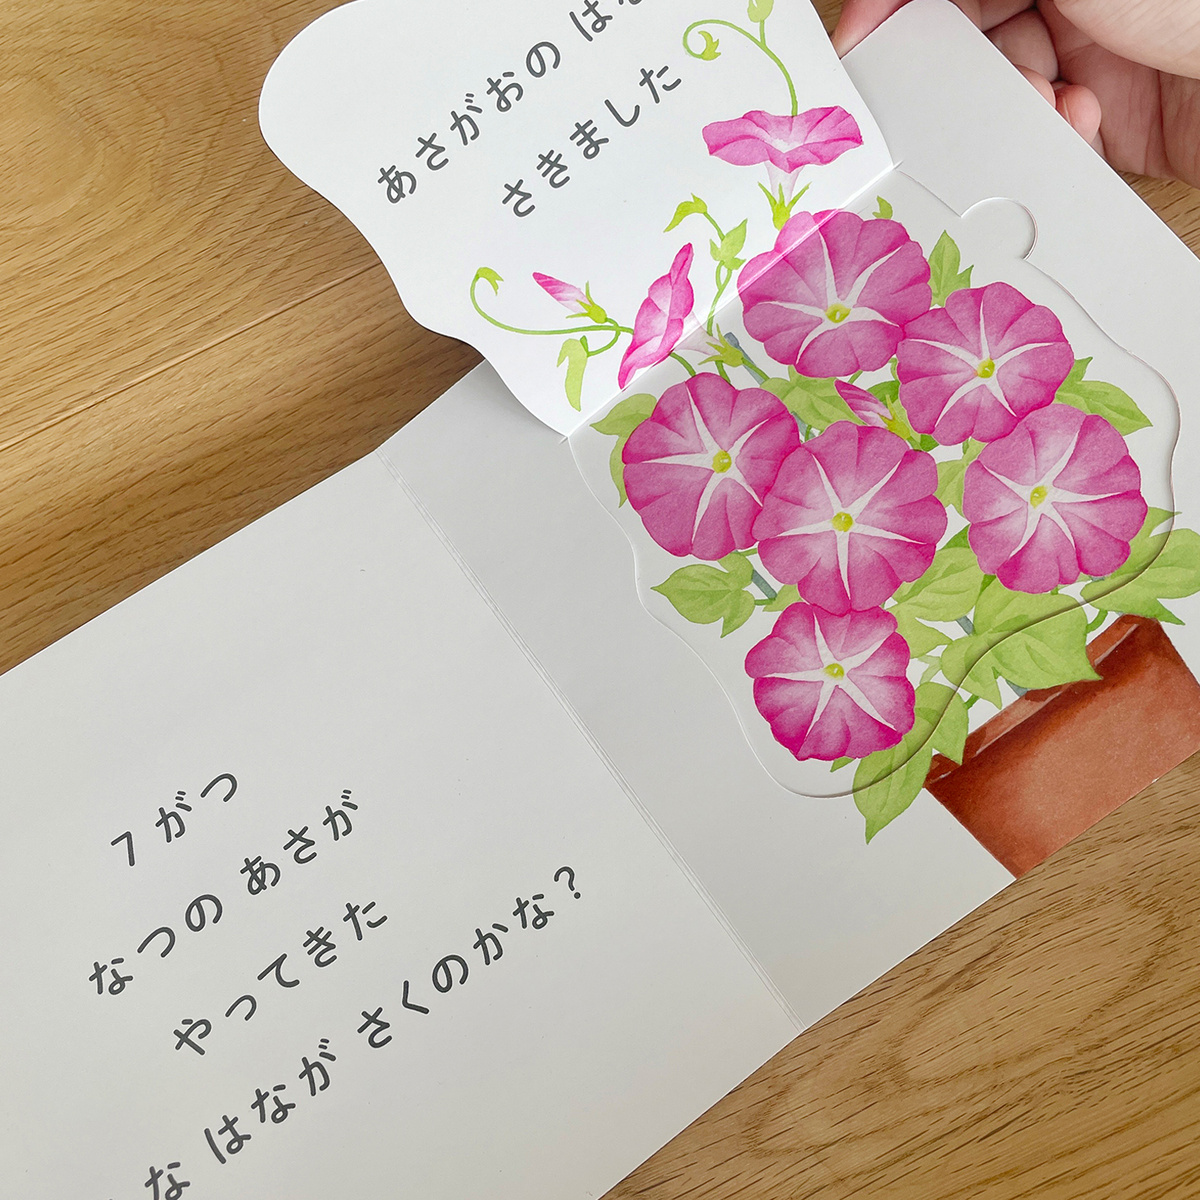 7がつ
なつの あさが
やってきた
な はなが さくのかな?
あさがおの は
さきました